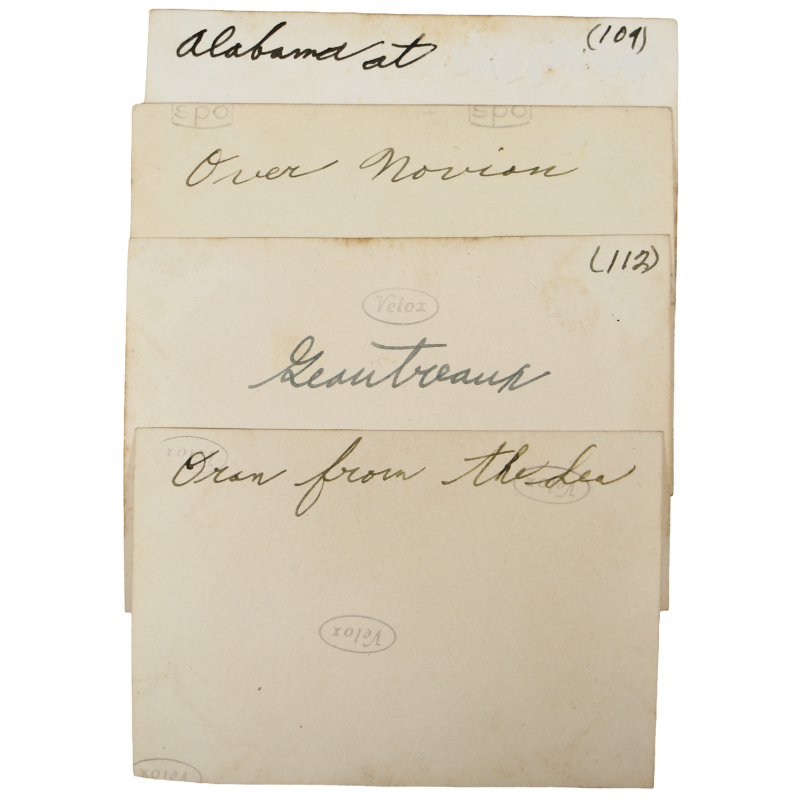 Alabama at (109)
spo spo
Over Novion
(112)
Velox
Geautreaux
Velox
Oran from the Sea
Velox
Velox
Velox